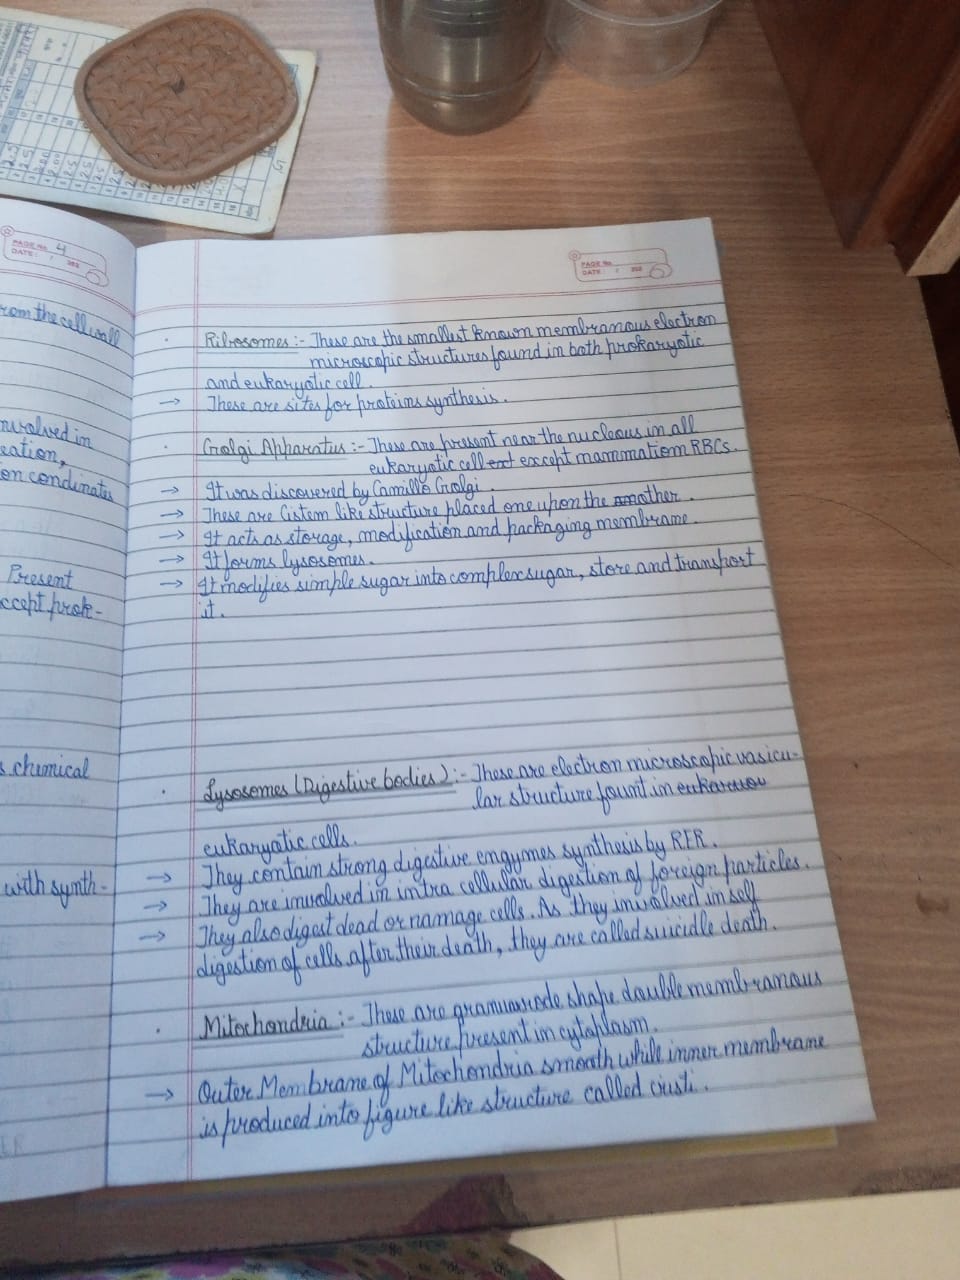 PAGE No. 4
DATE: / 202
rom the cell wall
nvolved in
eation,
on condinates
Present
ccept prok-
s chemical
with synth-
PAGE No.
DATE: / 202
Ribosomes :- These are the smallest known membranous electron
microscopic structures found in both prokaryotic
and eukaryotic cell.
→ These are sites for proteins synthesis.
Golgi Apparatus :- These are present near the nucleous in all
eukaryotic cell ext except mammatiom RBCs.
→ It was discovered by Camillo Golgi.
→ These are Cistem like structure placed one upon the another.
→ It acts as storage, modification and packaging membrane.
→ It forms lysosomes.
→ It modifies simple sugar into complex sugar, store and transport
it.
Lysosomes (Digestive bodies) :- These are electron microscopic vasicu-
lar structure fount in
eukaryotic cells.
→ They contain strong digestive engymes synthesis by RER.
→ They are involved in intra cellular digestion of foreign particles.
→ They also digest dead or namage cells. As they involved in self
digestion of cells after their death, they are called suicidle death.
Mitochondria :- These are shape double membranous
structure present in cytoplasm.
→ Outer Membrane of Mitochondria smooth while inner membrane
is produced into figure like structure called cristi.